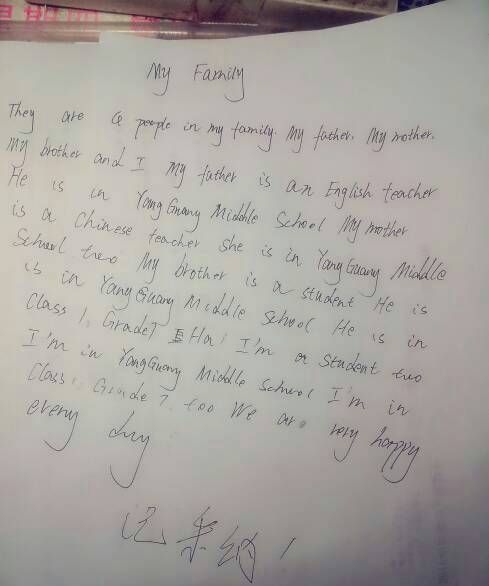 My Family
They are 4 people in my family. My father. My mother.
My brother and I My father is an English teacher
He is in YangGuang Middle School My mother
is a Chinese teacher She is in YangGuang Middle
School two My brother is a student He is
is in YangGuang Middle School He is in
Class 1, Grade7 Ha! I'm a student two
I'm in YangGuang Middle School I'm in
Class 1, Grade 7, too We are very happy
every day